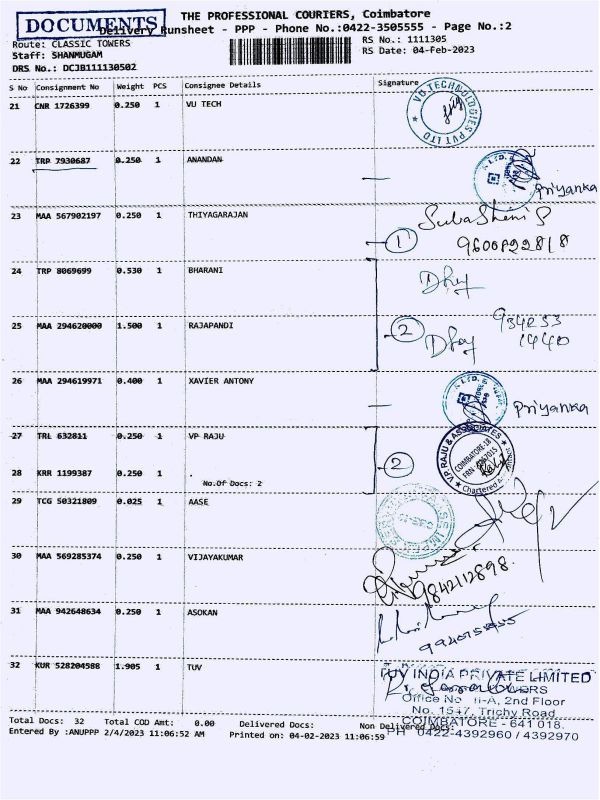 DOCUMENTS
THE PROFESSIONAL COURIERS, Coimbatore
Delivery Runsheet - PPP - Phone No.:0422-3505555 - Page No.:2
Route: CLASSIC TOWERS
RS No.: 1111305
Staff: SHANMUGAM
RS Date: 04-Feb-2023
DRS No.: DCJB111130502
S No Consignment No Weight PCS Consignee Details Signature
21 CNR 1726399 0.250 1 VU TECH
VU TECHNOLOGIES PVT LTD
22 TRP 7930687 0.250 1 ANANDAN
Priyanka
23 MAA 567902197 0.250 1 THIYAGARAJAN
SubaShini S
1
24 TRP 8069699 0.530 1 BHARANI
25 MAA 294620000 1.500 1 RAJAPANDI
2
934253
1440
26 MAA 294619971 0.400 1 XAVIER ANTONY
Priyanka
27 TRL 632811 0.250 1 VP RAJU
V.P. RAJU & ASSOCIATES
COIMBATORE-18
2
28 KRR 1199387 0.250 1 .
No.Of Docs: 2
29 TCG 50321809 0.025 1 AASE
30 MAA 569285374 0.250 1 VIJAYAKUMAR
9842112898
31 MAA 942648634 0.250 1 ASOKAN
32 KUR 528204588 1.905 1 TUV
TUV INDIA PRIVATE LIMITED
Office No II-A, 2nd Floor
No. 1547, Trichy Road
COIMBATORE - 641 018.
PH 0422-4392960 / 4392970
Total Docs: 32 Total COD Amt: 0.00 Delivered Docs: Non Delivered Docs:
Entered By :ANUPPP 2/4/2023 11:06:52 AM Printed on: 04-02-2023 11:06:59